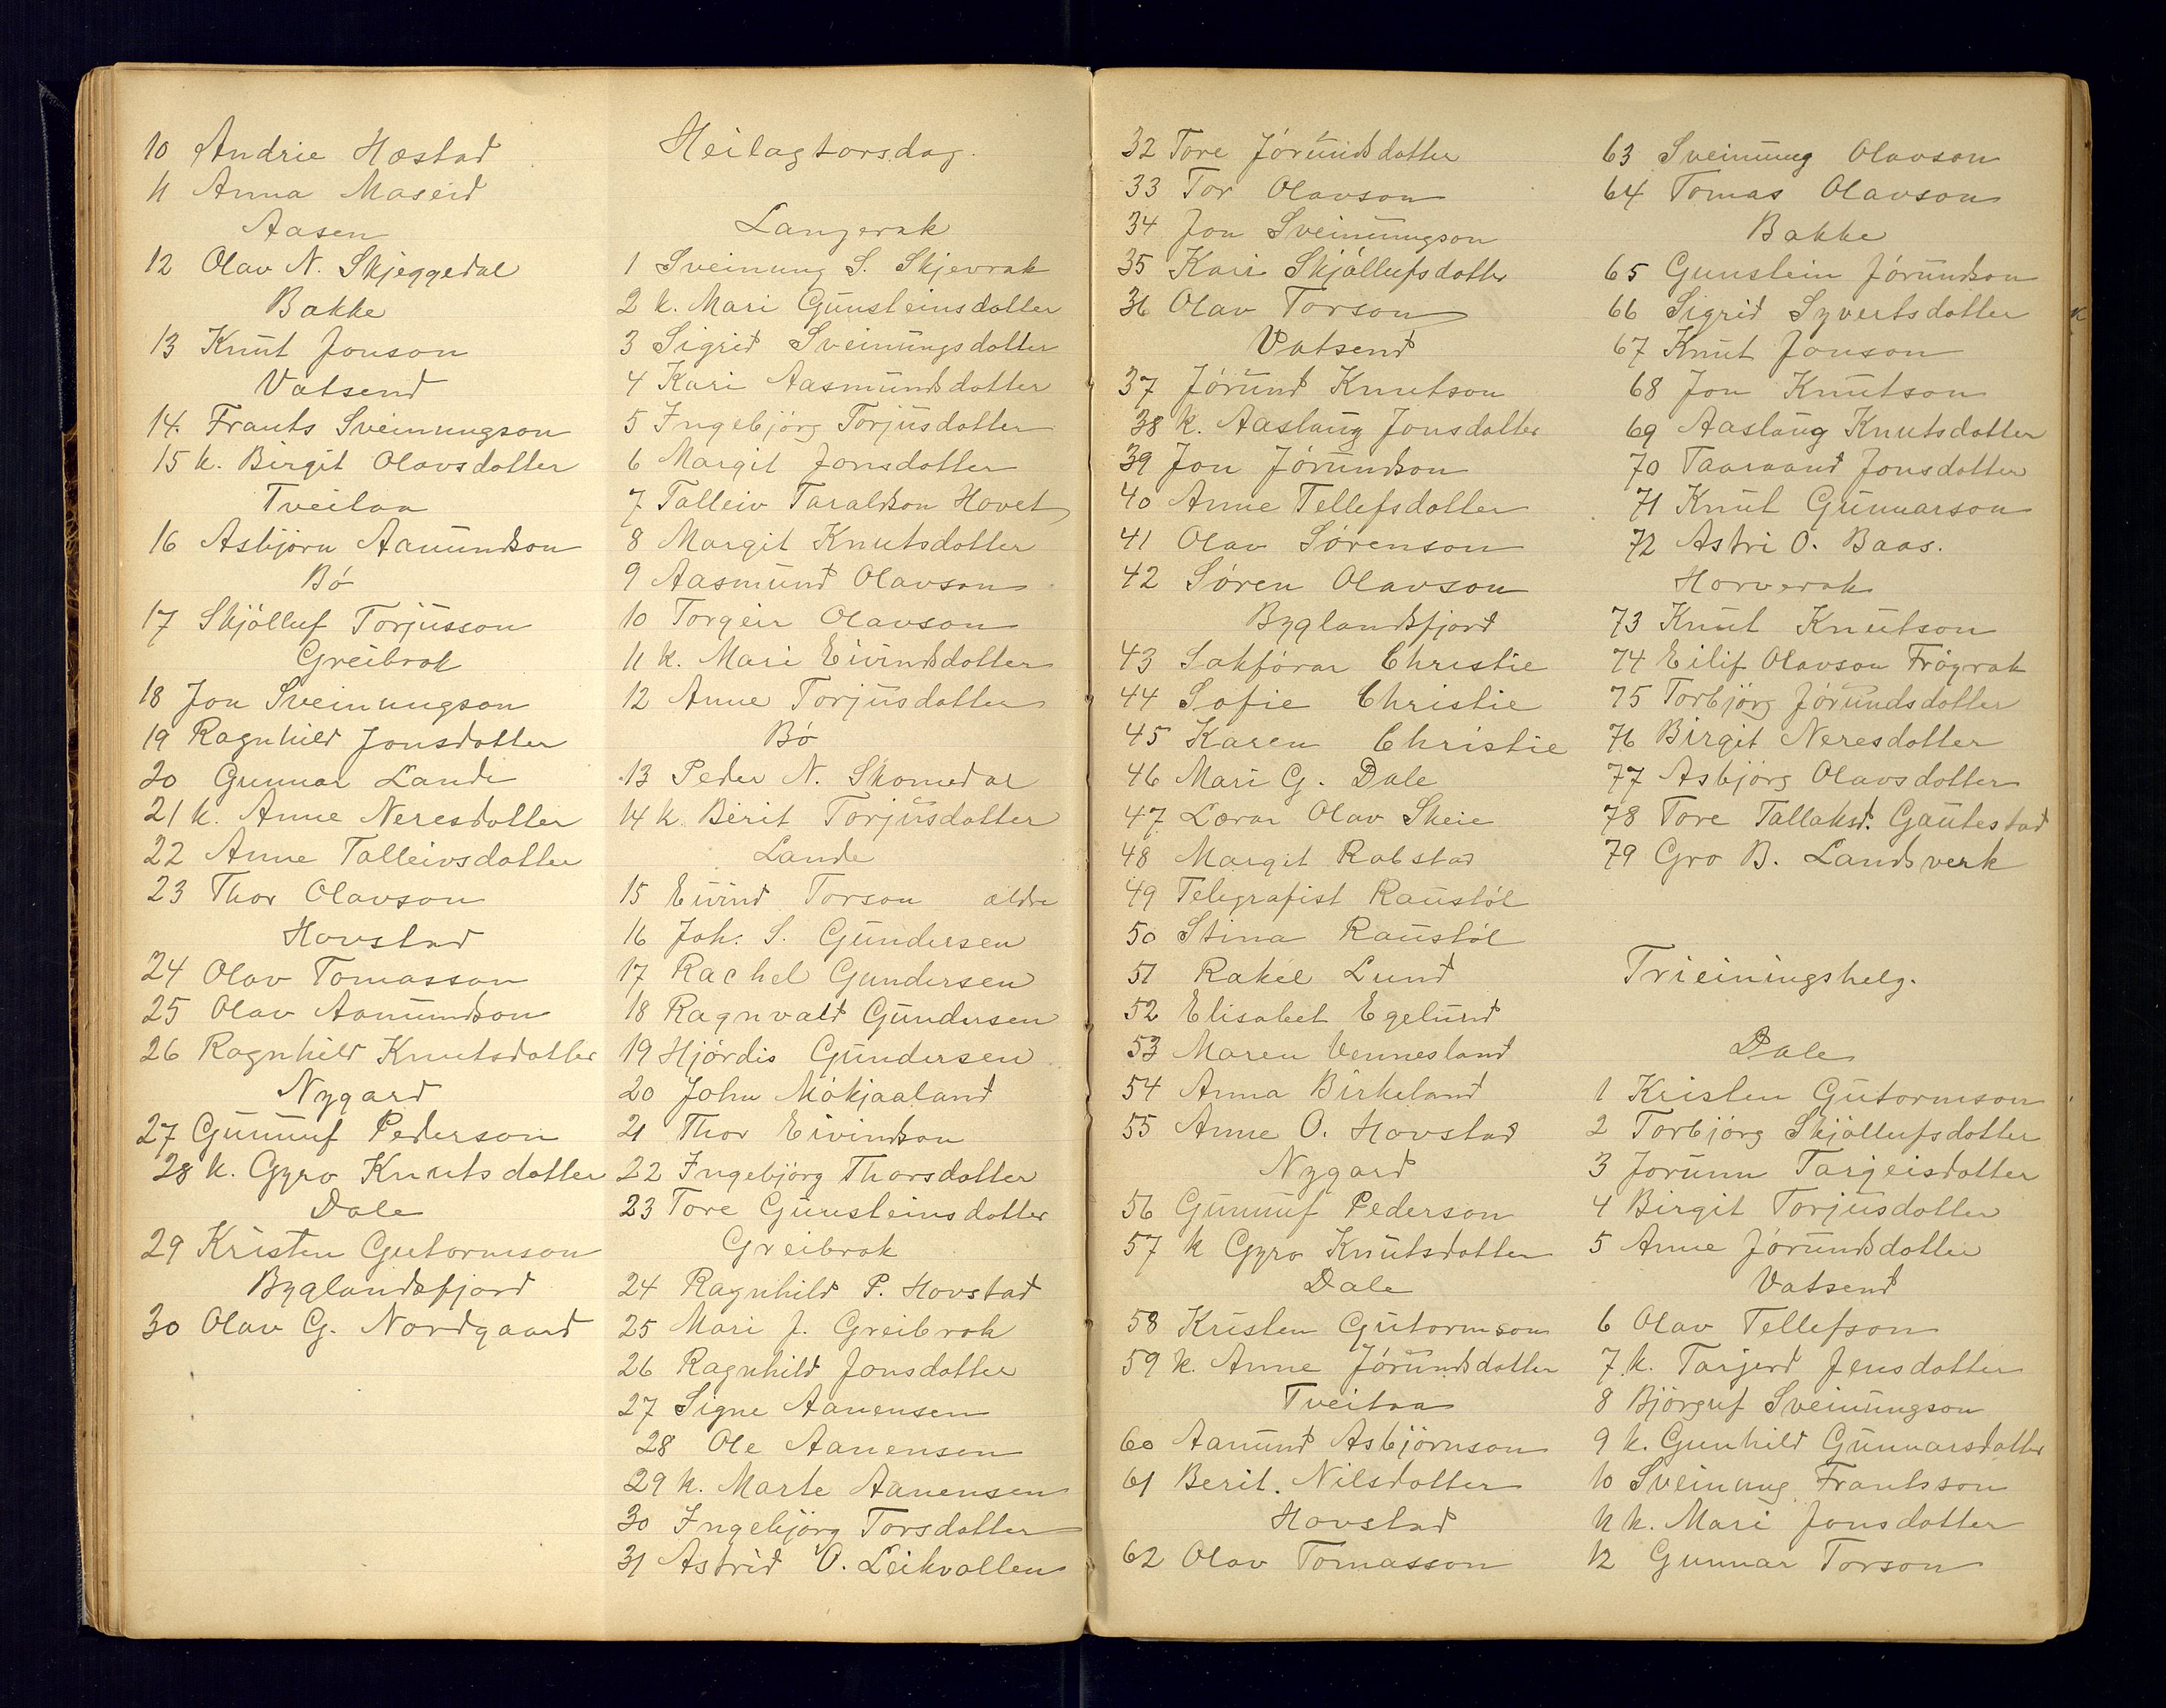 10 Andrie Hæstad
11 Anna Maseid
Aasen
12 Olav N. Skjeggedal
Bakke
13 Knut Jonson
Vatsend
14. Frants Sveinungson
15 k. Birgit Olavsdotter
Tveitaa
16 Asbjörn Aamundson
Bó
17 Skjólluf Torjusson
Greibrok
18 Jon Sveinungson
19 Ragnhild Jonsdotter
20 Gunnar Lande
21 k. Anne Neresdotter
22 Anne Talleivsdotter
23 Thor Olavson
Hovstad
24 Olav Tomasson
25 Olav Aamundson
26 Ragnhild Knutsdotter
Nygard
27 Gunnuf Pederson
28 k. Gyro Knutsdotter
Dale
29 Kristen Gutormson
Byglandsfjord
30 Olav G. Nordgaard
Heilagtorsdag.
Langerak
1 Sveinung S. Skjevrak
2 k. Mari Gunsteinsdotter
3 Sigrid Sveinungsdotter
4 Kari Aasmundsdotter
5 Ingebjörg Torjusdotter
6 Margit Jonsdotter
7 Talleiv Taraldson Hovet
8 Margit Knutsdotter
9 Aasmund Olavson
10 Torgeir Olavson
11 k. Mari Eivindsdotter
12 Anne Torjusdotter
Bó
13 Peder N. Skomedal
14 k. Birit Torjusdotter
Lande
15 Eivind Torson aldre
16 Joh. S. Gundersen
17 Rachel Gundersen
18 Ragnvald Gundersen
19 Hjórdis Gundersen
20 John Mókjaaland
21 Thor Eivindson
22 Ingebjörg Thorsdotter
23 Tore Gunsteinsdotter
Greibrok
24 Ragnhild P. Hovstad
25 Mari J. Greibrok
26 Ragnhild Jonsdotter
27 Signe Aanensen
28 Ole Aanensen
29 k. Marte Aanensen
30 Ingebjörg Torsdotter
31 Astrid O. Leikvollen
32 Tore Jórundsdotter
33 Tor Olavson
34 Jon Sveinungson
35 Kari Skjóllufsdotter
36 Olav Torson
Vatsend
37 Jórund Knutson
38 k. Aaslaug Jonsdotter
39 Jon Jórundson
40 Anne Tellefsdotter
41 Olav Sórenson
42 Sóren Olavson
Byglandsfjord
43 Sakfórar Christie
44 Sofie Christie
45 Karen Christie
46 Mari G. Dale
47 Lærar Olav Skeie
48 Margit Rabstad
49 Telegrafist Raustól
50 Stina Raustól
51 Rakel Lund
52 Elisabet Egelund
53 Maren Vennesland
54 Anna Birkeland
55 Anne O. Hovstad
Nygard
56 Gunnuf Pederson
57 k Gyro Knutsdotter
Dale
58 Kristen Gutormson
59 k. Anne Jórundsdotter
Tveitaa
60 Aamund Asbjörnson
61 Berit. Nilsdotter
Hovstad
62 Olav Tomasson
63 Sveinung Olavson
64 Tomas Olavson
Bakke
65 Gunstein Jórundson
66 Sigrid Syvertsdotter
67 Knut Jonson
68 Jon Knutson
69 Aaslaug Knutsdotter
70 Taaraand Jonsdotter
71 Knut Gunnarson
72 Astri O. Baas.
Horverak
73 Knut Knutson
74 Eilif Olavson Frógrak
75 Torbjörg Jórundsdotter
76 Birgit Neresdotter
77 Asbjörg Olavsdotter
78 Tore Tallaksd. Gautestad
79 Gro B. Landsverk
Trieiningshelg.
Dale
1 Kristen Gutormson
2 Torbjörg Skjóllufsdotter
3 Jorunn Tarjeisdotter
4 Birgit Torjusdotter
5 Anne Jórundsdotter
Vatsend
6 Olav Tellefson
7 k. Tarjerd Jensdotter
8 Björguf Sveinungson
9 k. Gunhild Gunnarsdotter
10 Sveinung Frantsson
11 k. Mari Jonsdotter
12 Gunnar Torson